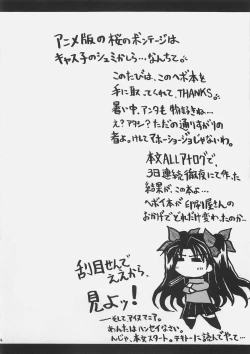 アニメ版の桜のボンテージは
キャス子のシュミかしら…なんちて。
このたびは、このヘボ本を
手に取ってくれて、THANKS。
暑い中、アンタも物好きね…
え?アタシ?ただの通りすがりの
者よ。けしてアホーショージョじゃないわ。
本文ALLアナログで、
3日連続徹夜にて作った
結果が、この本よ…
ヘボイ本が印刷屋さんの
おかげでどれだけ変わったのか…
刮目せんで
ええから、
見よッ!
そしてアイスマニア。
めんたはハンセイなさい。
んじゃ、本文スタート。テキトーに読んでやって…